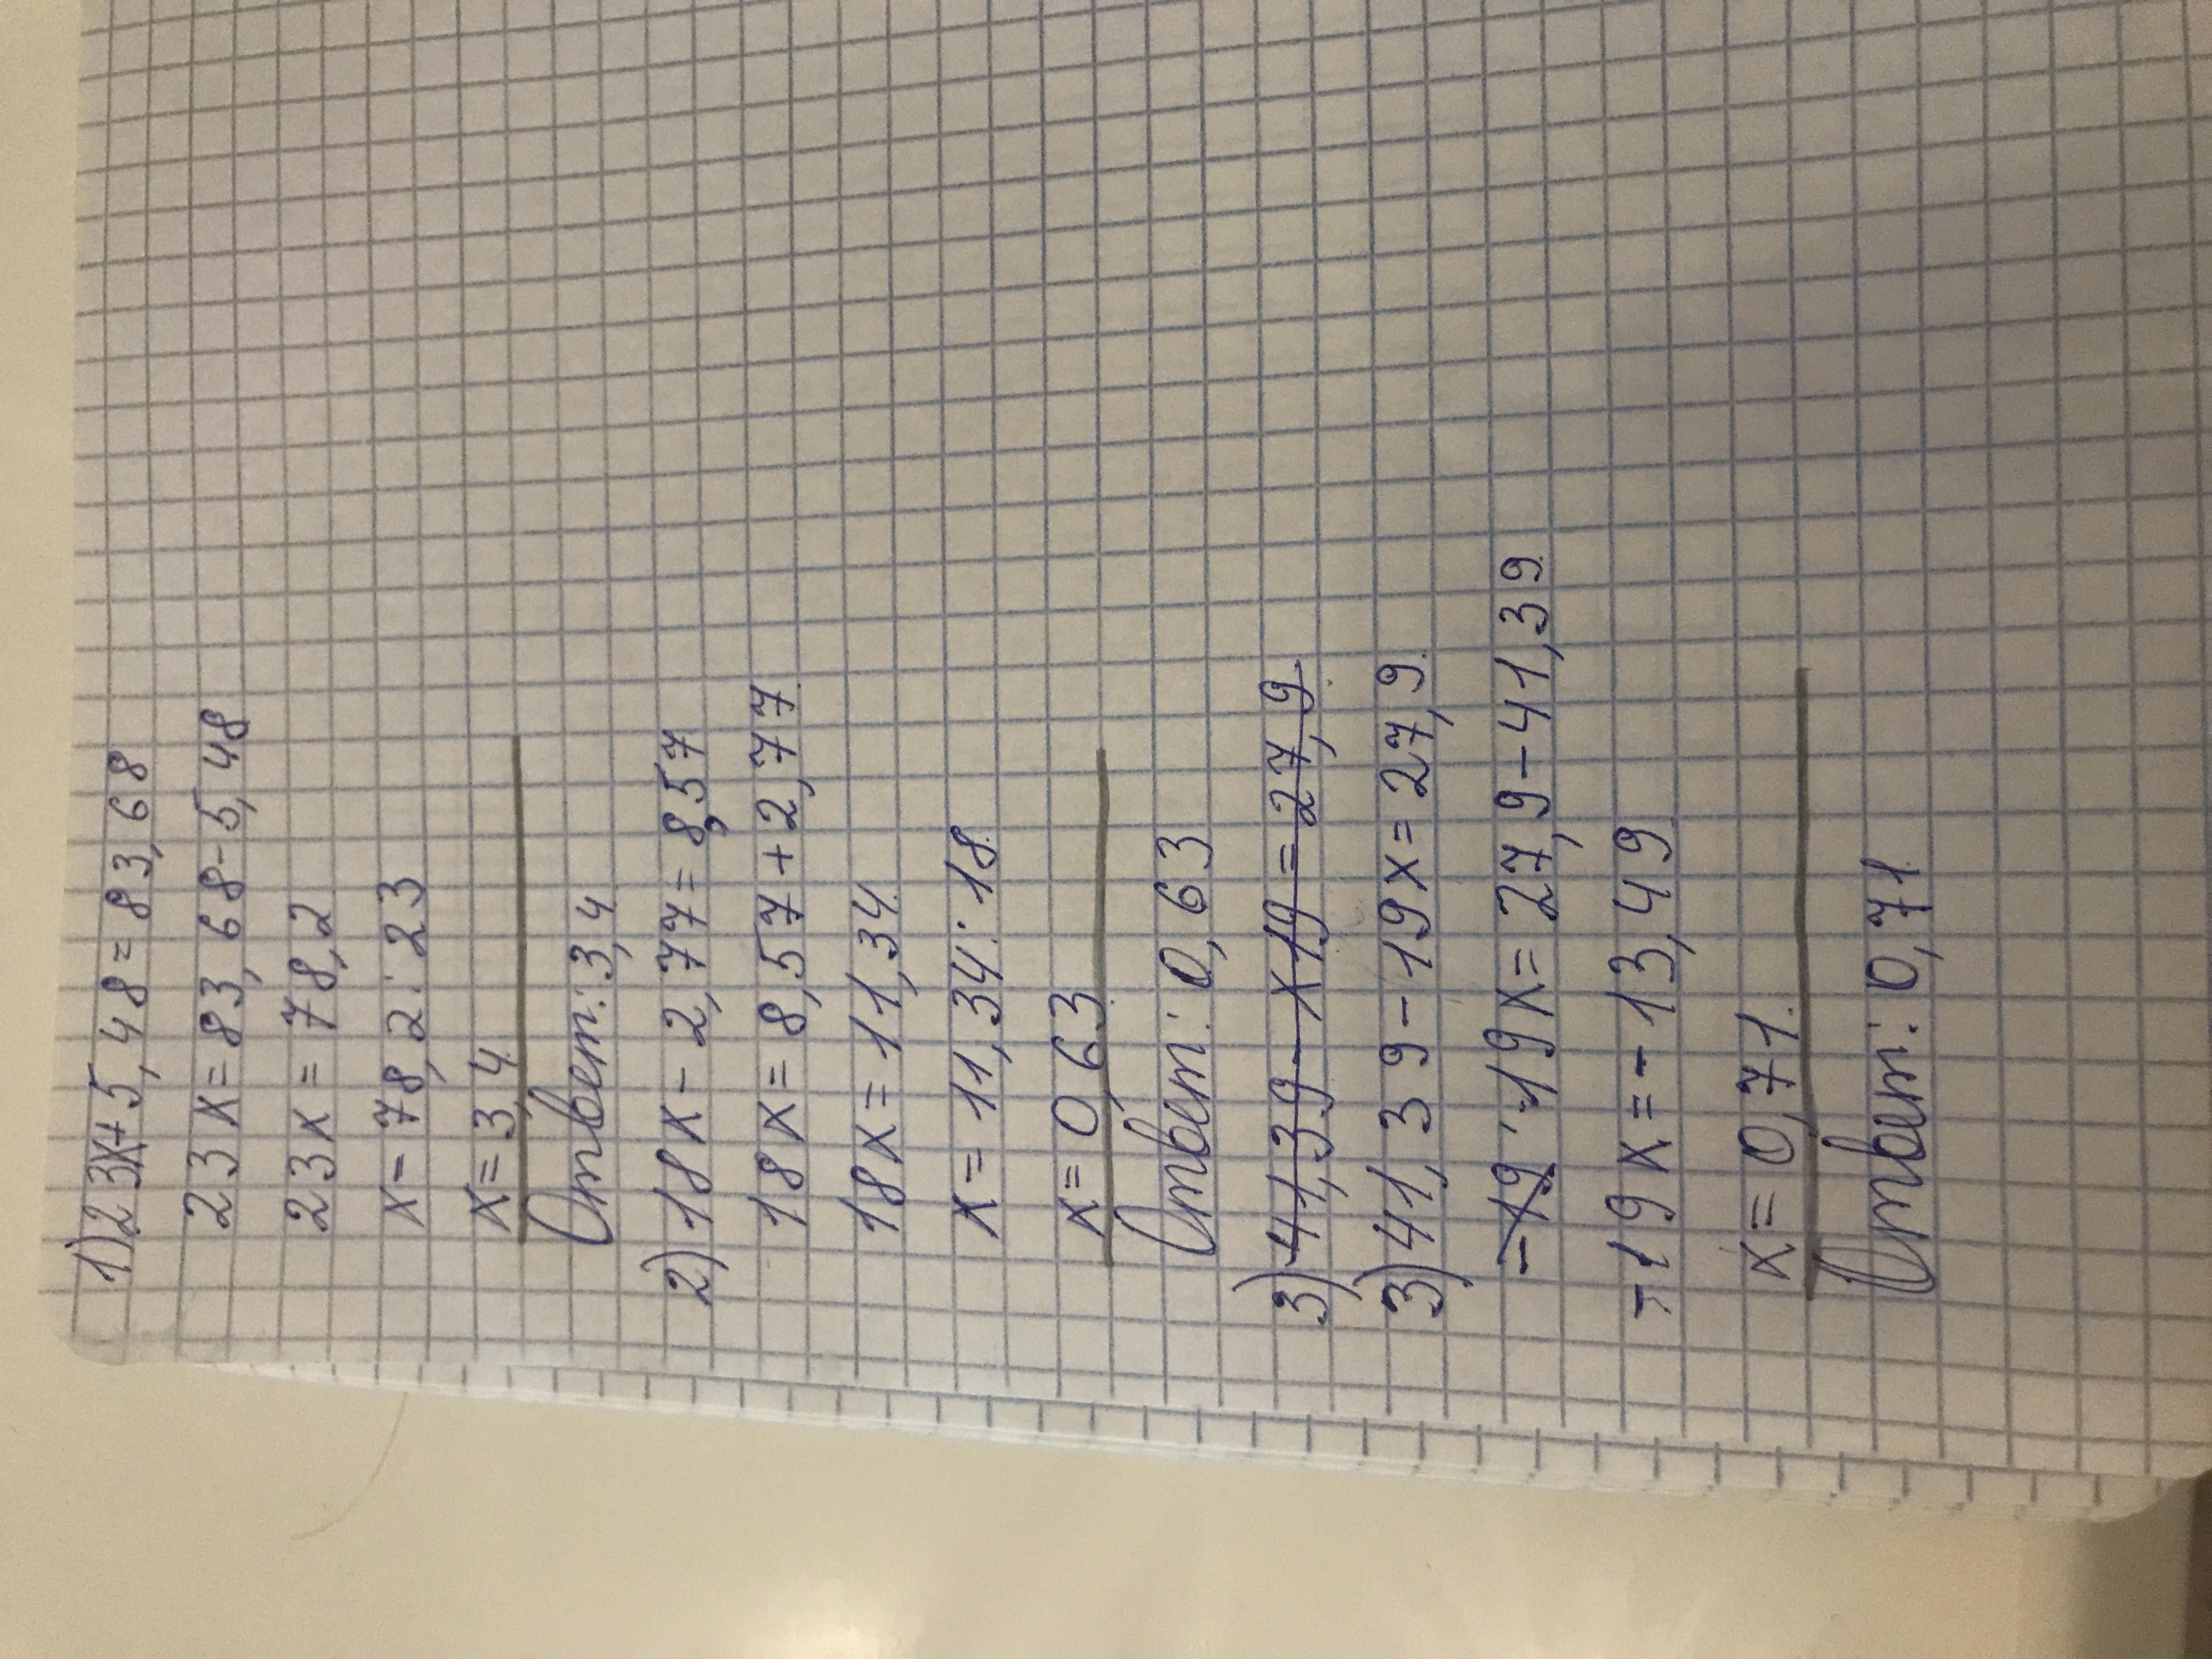 1) 23x+5,48=83,68
23x=83,68-5,48
23x=78,2
x=78,2:23
x=3,4
Ответ: 3,4
2) 18x-2,77=8,57
18x=8,57+2,77
18x=11,34
x=11,34:18
x=0,63
Ответ: 0,63
3) 41,39-x19=27,9
3) 41,39-19x=27,9
-19 -19x=27,9-41,39
-19x=-13,49
x=0,71
Ответ: 0,71